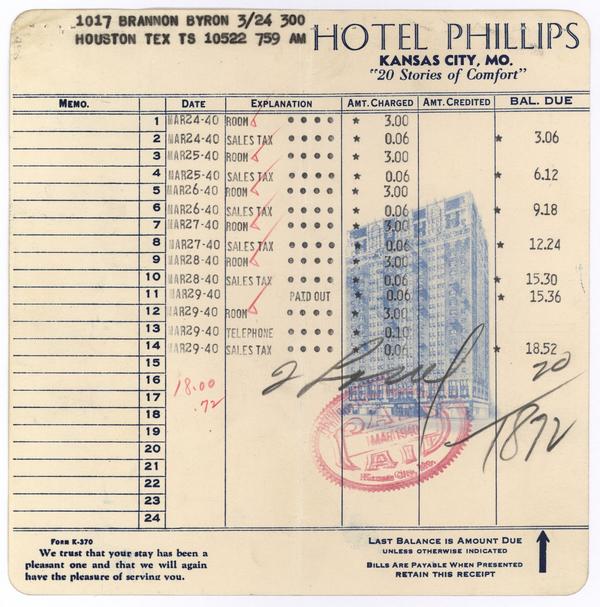 1017 BRANNON BYRON 3/24 300
HOUSTON TEX TS 10522 759 AM
HOTEL PHILLIPS
KANSAS CITY, MO.
"20 Stories of Comfort"
MEMO. DATE EXPLANATION AMT. CHARGED AMT. CREDITED BAL. DUE
1 MAR24-40 ROOM * 3.00
2 MAR24-40 SALES TAX * 0.06 * 3.06
3 MAR25-40 ROOM * 3.00
4 MAR25-40 SALES TAX * 0.06 * 6.12
5 MAR26-40 ROOM * 3.00
6 MAR26-40 SALES TAX * 0.06 * 9.18
7 MAR27-40 ROOM * 3.00
8 MAR27-40 SALES TAX * 0.06 * 12.24
9 MAR28-40 ROOM * 3.00
10 MAR28-40 SALES TAX * 0.06 * 15.30
11 MAR29-40 PAID OUT * 0.06 * 15.36
12 MAR29-40 ROOM * 3.00
13 MAR29-40 TELEPHONE * 0.10
14 MAR29-40 SALES TAX * 0.06 * 18.52
15 20
16 18.00
17 .72
18 1872
19
20
21
22
23
24
FORM K-370
We trust that your stay has been a
pleasant one and that we will again
have the pleasure of serving you.
LAST BALANCE IS AMOUNT DUE
UNLESS OTHERWISE INDICATED
BILLS ARE PAYABLE WHEN PRESENTED
RETAIN THIS RECEIPT